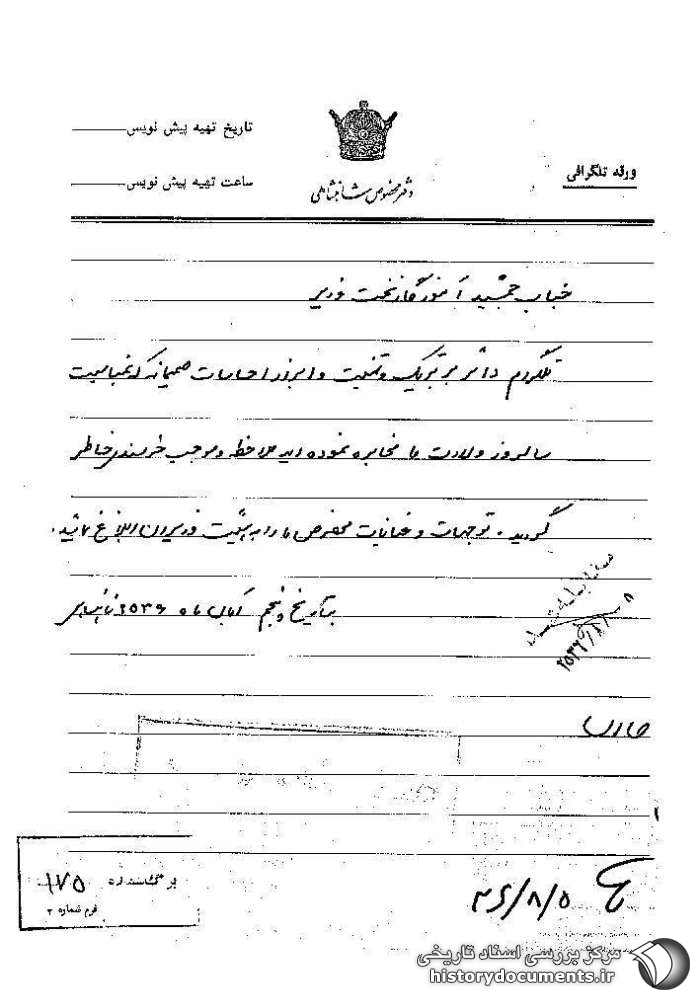 تاریخ تهیه پیش نویس
ورقه تلگرافی
ساعت تهیه پیش نویس
دفتر مخصوص شاهنشاهی
جناب جمشید آموزگار نخست وزیر
تلگرام دائر بر تبریک و تهنیت و ابراز احساسات صمیمانه که بمناسبت
سالروز ولادت ما مخابره نموده اید ملاحظه و موجب خرسندی خاطر
گردید. توجهات و عنایات مخصوص ما را به هیئت وزیران ابلاغ نمائید.
بتاریخ پنجم آبان ماه ۲۵۳۶ شاهنشاهی
۲۵۳۶/۸/۸
۳۶/۸/۵
۱۷۵
فرم شماره ۲
مرکز بررسی اسناد تاریخی
historydocuments.ir